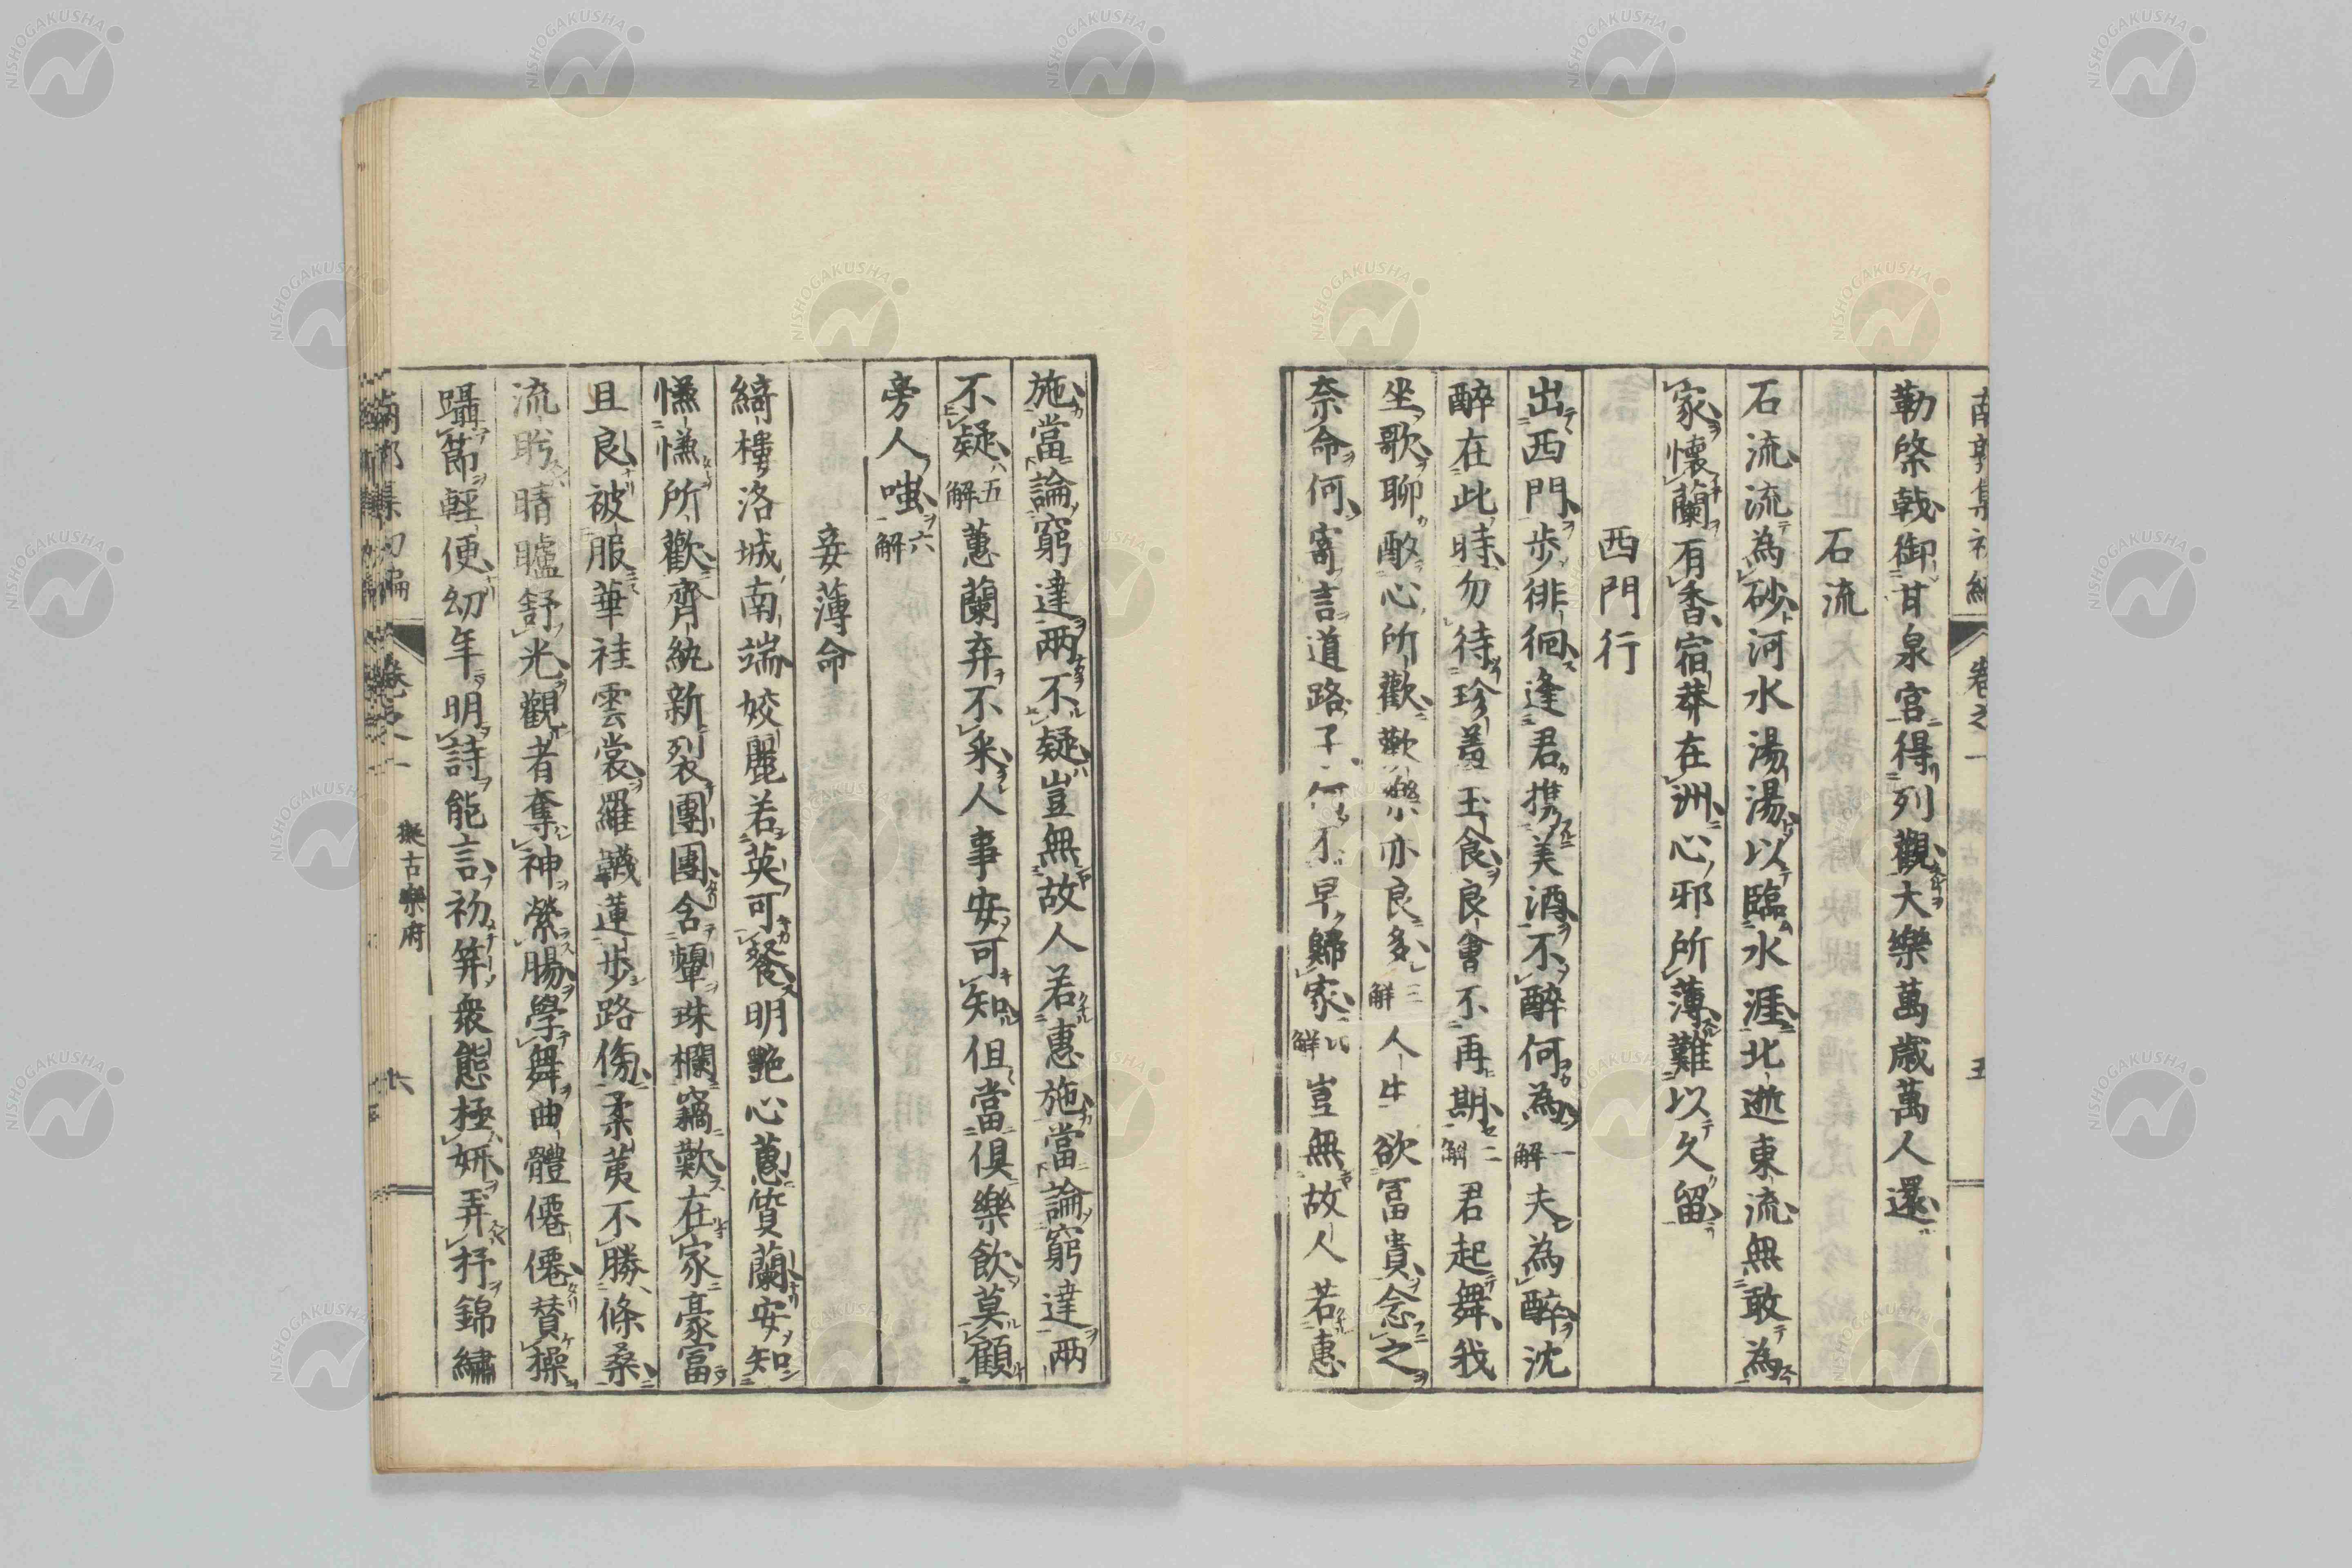 勒綮戟御甘泉宮得列觀大樂萬歲萬人還
石流
石流流為砂河水湯湯以臨水涯北逝東流無敢為
家懷蘭有香宿莽在洲心邪所薄難以久留
西門行
出西門步徘徊逢君攜美酒不醉何為一解夫為醉沈
醉在此時勿待珍羞玉食良會不再期二解君起舞我
坐歌聊啟心所歡歡樂亦良多三解人生欲冨貴念之
奈命何寄言道路子何不早歸家四解豈無故人若惠
施當論窮達兩不疑豈無故人若惠施當論窮達兩
不疑五解蕙蘭弃不采人事安可知但當俱樂飲莫顧
旁人嗤六解
妾薄命
綺樓洛城南端姣麗若英可餐明艷心蕙質蘭安知
慊慊所歡齊紈新裂團團含顰珠欄竊歎在家豪富
且良被服華袿雲裳羅韈蓮步路傷柔荑不勝條桑
流眄睛矑舒光觀者奪神縈腸學舞曲體僊僊贊操
躡節輕便幼年明詩能言初筓衆態極妍弄抒錦繡
南郭集初編 卷之一 擬古樂府 六
NISHOGAKUSHA